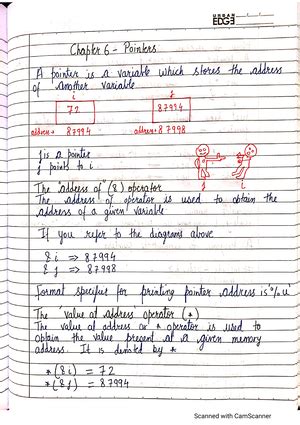 URBAN
EDGE
Chapter 6 - Pointers
A pointer is a variable which stores the address
of another variable
i j
72 87994
address → 87994 address → 87998
j is a pointer
j points to i
j i
The "address of" (&) operator
The address of operator is used to obtain the
address of a given variable
If you refer to the diagrams above
&i => 87994
&j => 87998
Format specifier for printing pointer address is '%u'
The 'value at address' operator (*)
The value at address or * operator is used to
obtain the value present at a given memory
address. It is denoted by *
*(&i) = 72
*(&j) = 87994
Scanned with CamScanner